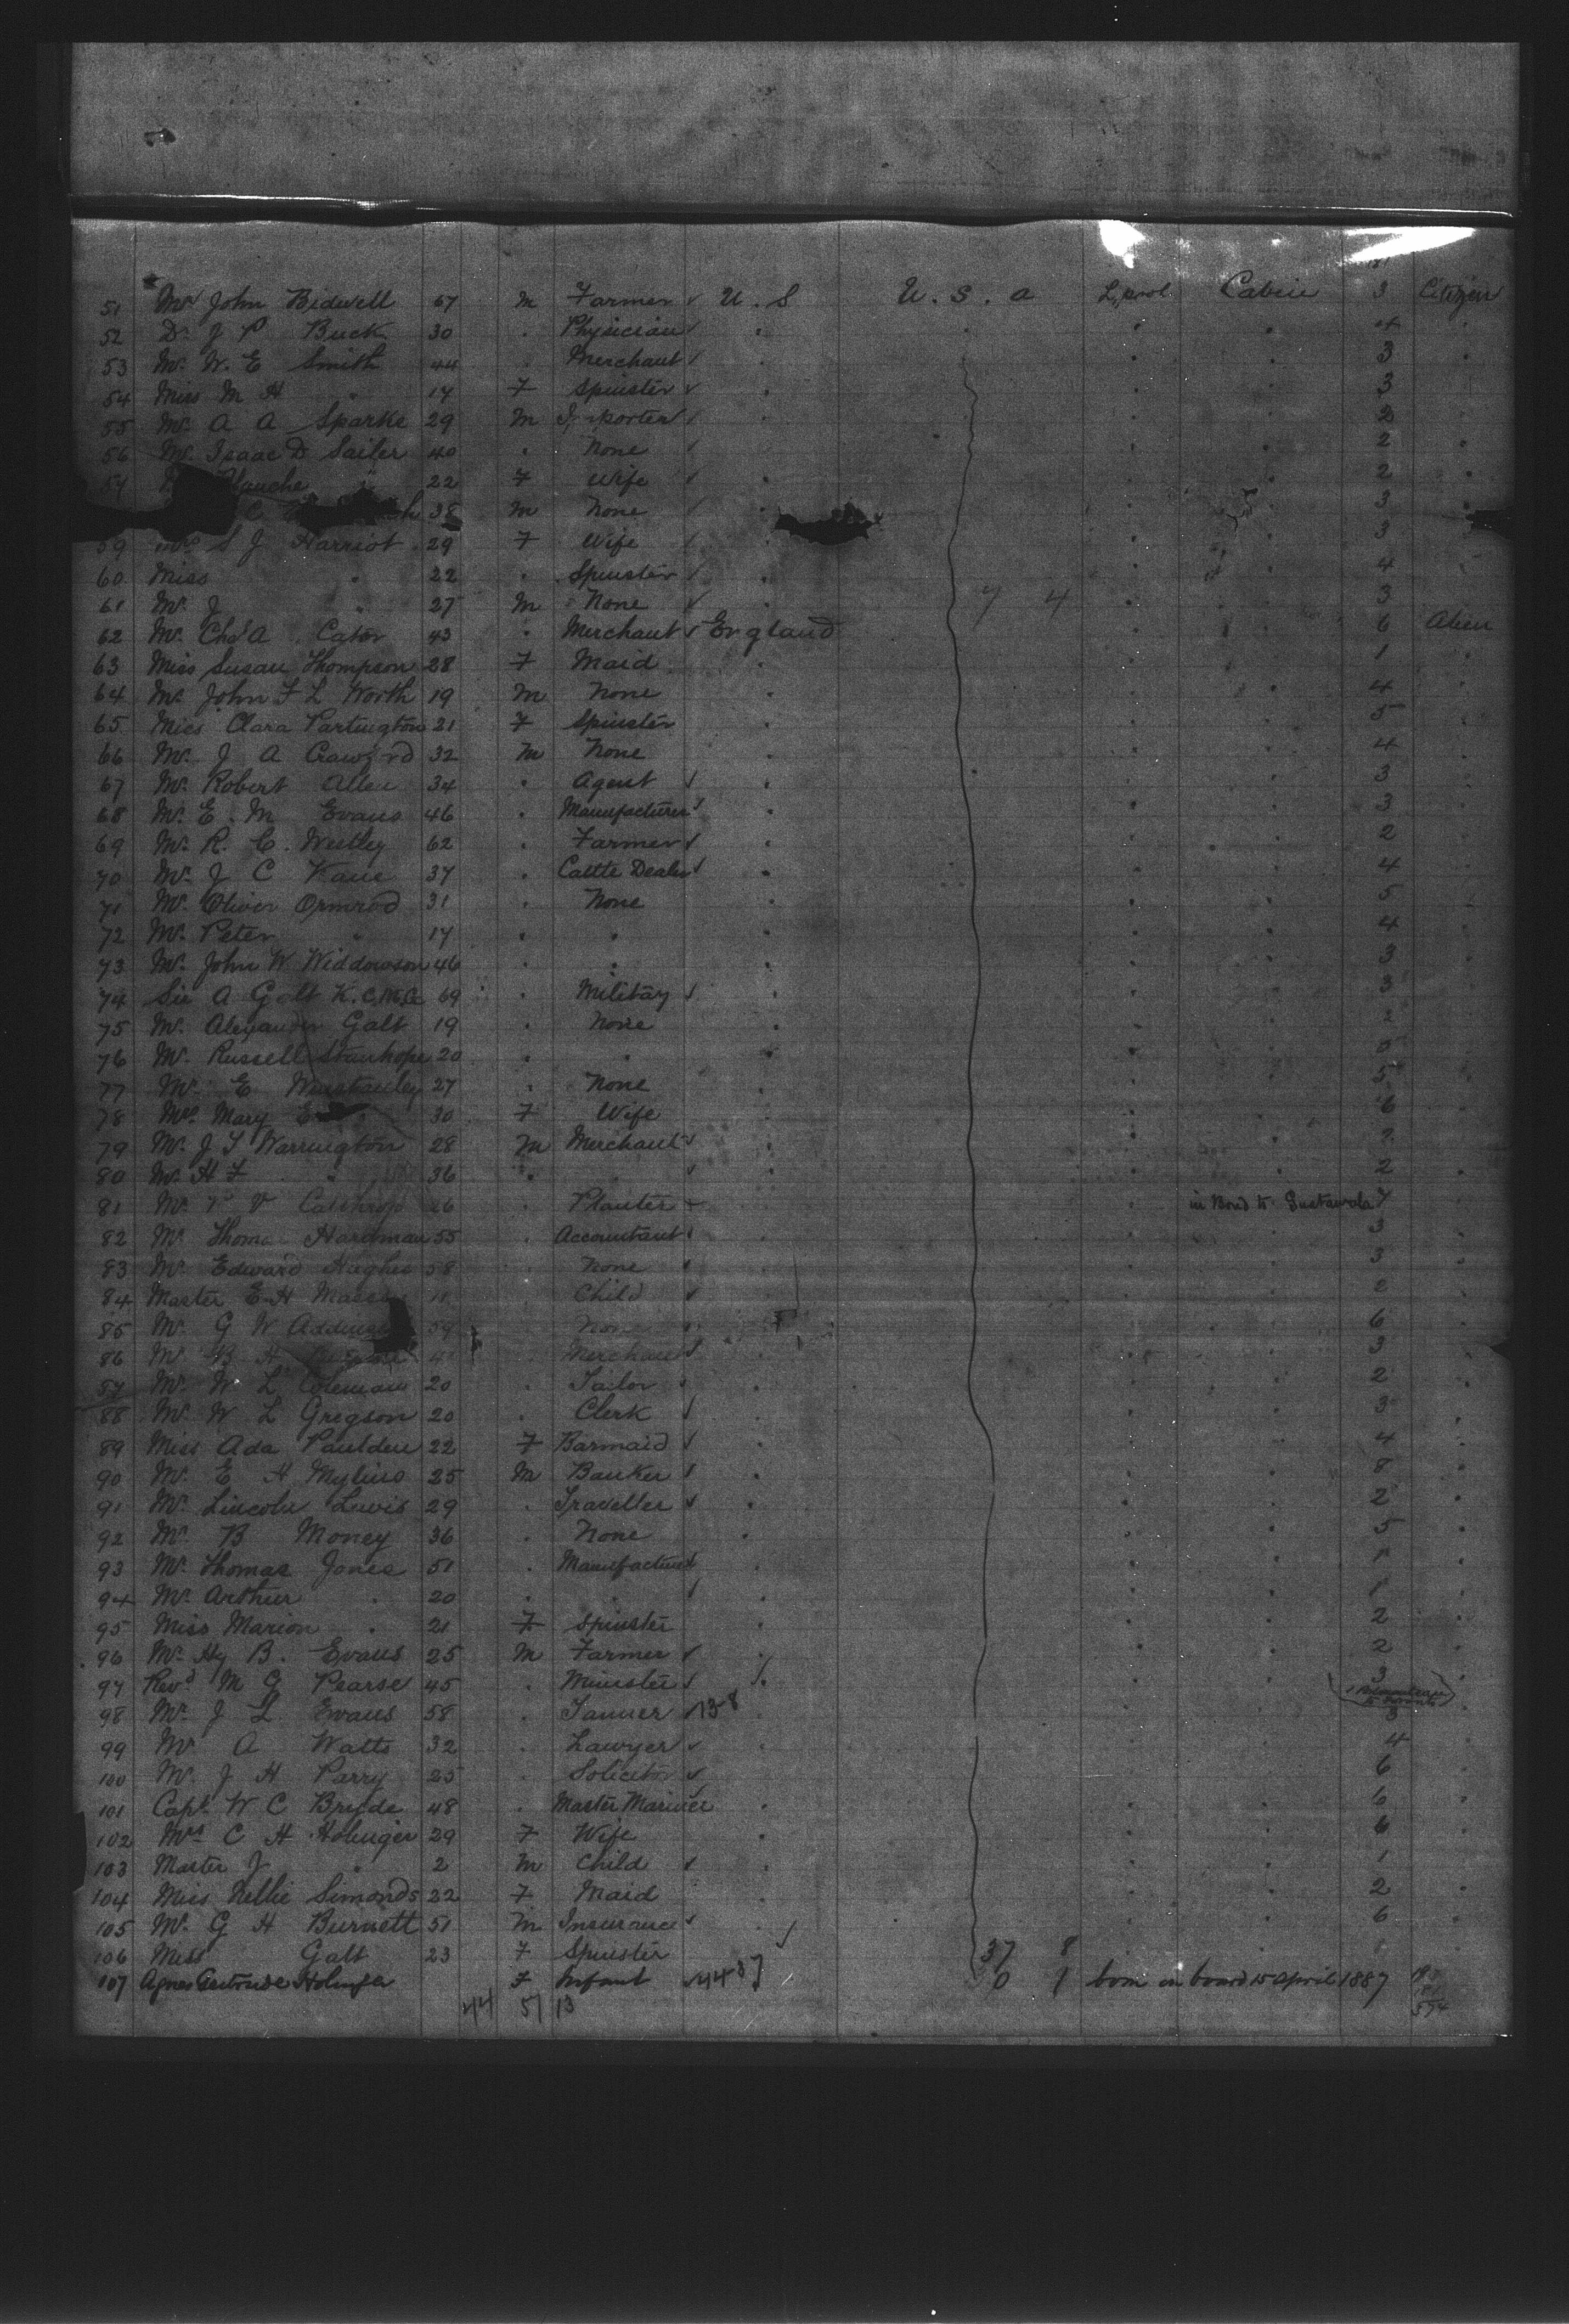 51 Mr John Bidwell 67 M Farmer U.S U.S.a L.pool Cabin 3 Citizen
52 Dr J P Buck 30 . Physician . . . . 4 .
53 Mr W. E Smith 44 Merchant . . . 3 .
54 Miss M H " 17 F Spinster . . . 3 .
55 Mr A A Sparke 29 M Importer . . . 2 .
56 Mr Isaac D Sailer 40 . None . . . 2 .
Blanche " 22 F Wife . . . 2 .
C 38 M None . . 3 .
59 Mrs S J Harriot 29 F Wife . . . 3 .
60 Miss " 22 . Spinster . . . 4 .
61 Mr J " 27 M None . 7 4 . . 3 .
62 Mr Chas A Cator 43 . Merchant England . . 6 Alien
63 Miss Susan Thompson 28 F Maid . . . 1 .
64 Mr John F L Worth 19 M None . . . 4 .
65 Miss Clara Partington 21 F Spinster . . . 5 .
66 Mr J A Crawford 32 M None . . . 4 .
67 Mr Robert Allen 34 . Agent . . . 3 .
68 Mr E. M Evans 46 . Manufacturer . . . 3 .
69 Mr R. C. Westley 62 . Farmer . . . 2 .
70 Mr J C Kane 37 . Cattle Dealer . . . 4 .
71 Mr Oliver Ormrod 31 . None . . . 5 .
72 Mr Peter " 17 . . . . . 4 .
73 Mr John W Widdowson 46 . . . . . 3 .
74 Sir A Galt K.C.M.G 69 . Military . . . 3 .
75 Mr Alexander Galt 19 . None . . . 2 .
76 Mr Russell Stanhope 20 . . . . . 5 .
77 Mr E 27 . None . . . 5 .
78 Mrs Mary E 30 F Wife . . . 6 .
79 Mr J T Warrington 28 M Merchant . . . 2 .
80 Mr H F " 36 . . . . . 2 .
81 Mr V Calthrop 26 . Planter . in Bond to 7 .
82 Mr Thomas Hardman 55 . Accountant . . . 3 .
83 Mr Edward Hughes 58 . None . . . 3 .
84 Master E H 11 . Child . . . 2 .
85 Mr G W 59 None . . 6 .
86 Mr B H Merchant . . 3 .
87 Mr W L Coleman 20 . Tailor . . . 2 .
88 Mr W L Gregson 20 . Clerk . . . 3 .
89 Miss Ada Paulden 22 F Barmaid . . . 4 .
90 Mr E H Mylius 25 M Banker . . . 8 .
91 Mr Lincoln Lewis 29 . Traveller . . . 2 .
92 Mr B Money 36 . None . . . 5 .
93 Mr Thomas Jones 51 . Manufacturer . . . 1 .
94 Mr Arthur " 20 . . . . . 1 .
95 Miss Marion " 21 F Spinster . . . 2 .
96 Mr Hy B. Evans 25 M Farmer . . . 2 .
97 Revd M G Pearse 45 . Minister . . . 3 .
98 Mr J L Evans 58 . Tanner 13-8 . . . 3 .
99 Mr A Watts 32 . Lawyer . . . 4 .
100 Mr J H Parry 25 . Solicitor . . . 6 .
101 Capt W C Bryde 48 . Master Mariner . . . 6 .
102 Mrs C H Holinger 29 F Wife . . . 6 .
103 Master J " 2 M Child . . . 1 .
104 Miss Nellie Simonds 22 F Maid . . . 2 .
105 Mr G H Burnett 51 M Insurance . . . 6 .
106 Miss Galt 23 F Spinster 37 8 . . 1 .
107 Agnes Gertrude Holinger F Infant 44 37 0 1 born on board 15 April 1887
44 51 13 574